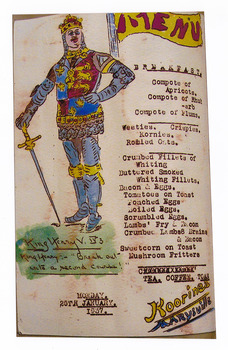 MENU
BREAKFAST.
Compote of
Apricots.
Compote of Rhub
-arb
Compote of Plums.
Weeties. Crispies.
Kornies.
Rolled Oats.
Crumbed Fillets of
Whiting
Buttered Smoked
Whiting Fillets.
Bacon & Eggs.
Tomatoes on Toast
Poached Eggs
Boiled Eggs.
Scrambled Eggs.
Lambs' Fry & Bacon
Crumbed Lambs Brains
& Bacon
Sweetcorn on Toast
Mushroom Fritters
TEA, COFFEE,
King Henry V.
"Break out
into a second course"
MONDAY,
20TH JANUARY,
1957.
Kooringa
MARYSVILLE